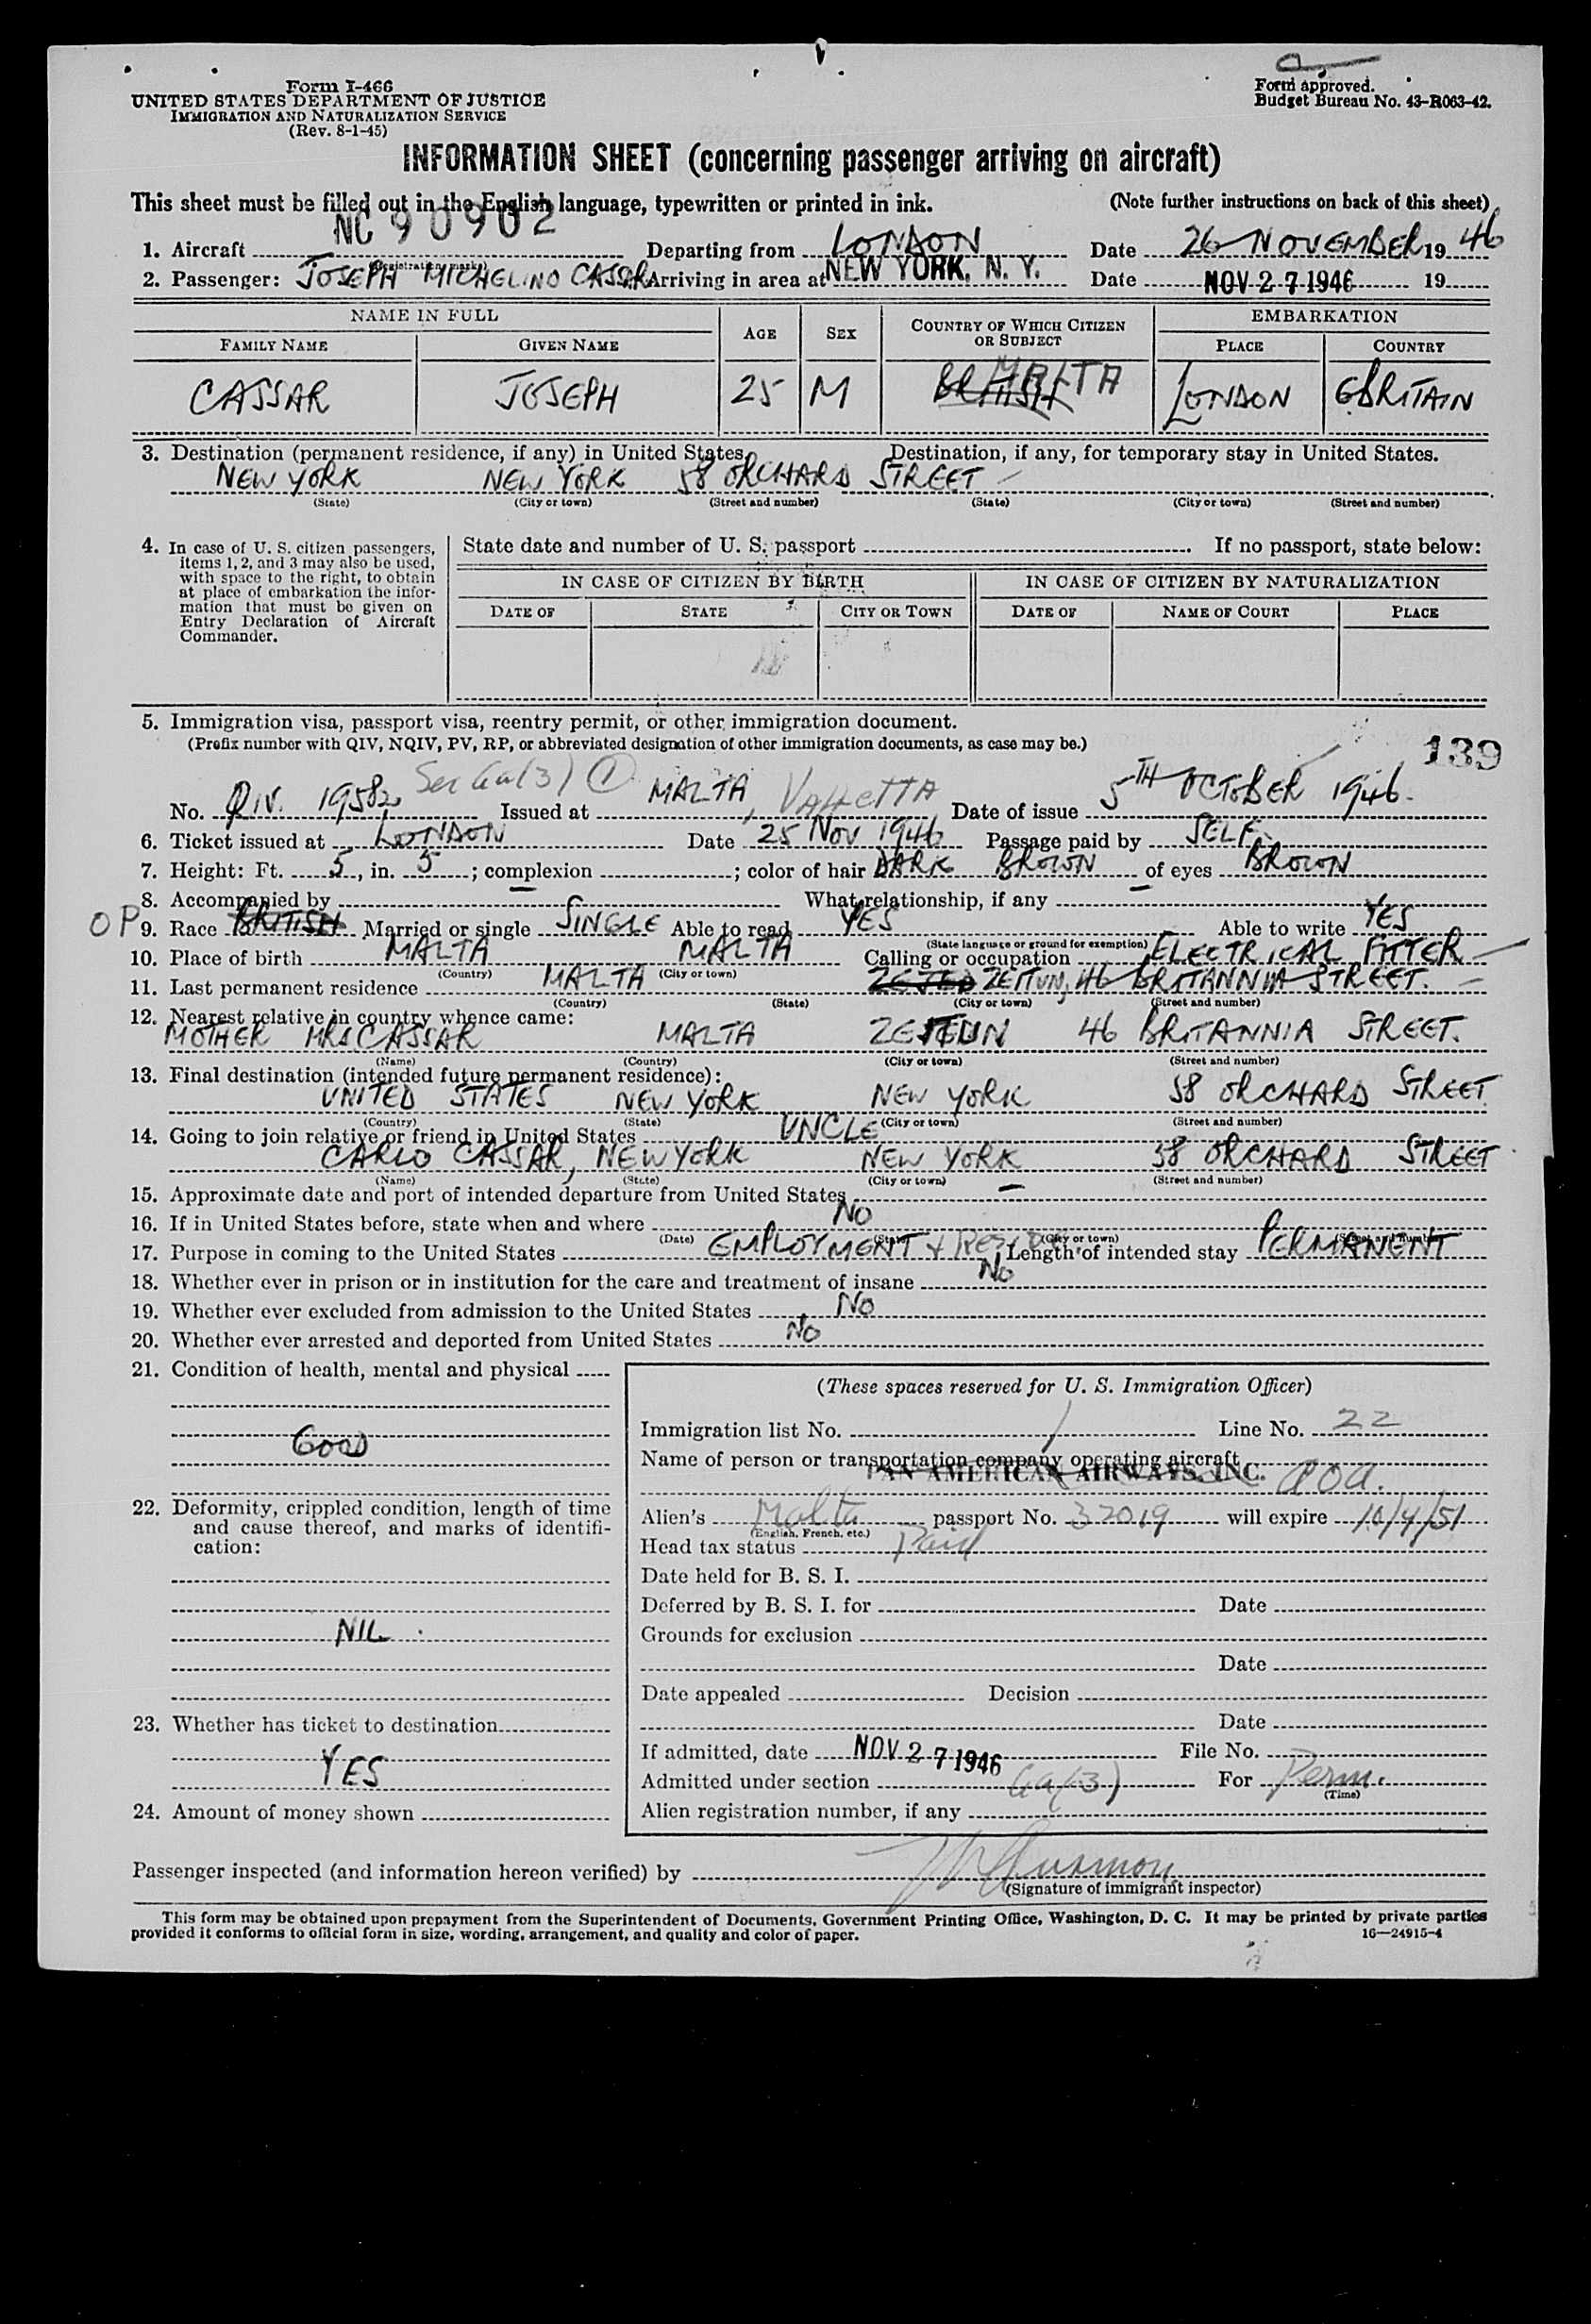 Form I-466
UNITED STATES DEPARTMENT OF JUSTICE
IMMIGRATION AND NATURALIZATION SERVICE
(Rev. 8-1-45)
Form approved.
Budget Bureau No. 43-R063-42.
INFORMATION SHEET (concerning passenger arriving on aircraft)
This sheet must be filled out in the English language, typewritten or printed in ink. (Note further instructions on back of this sheet)
1. Aircraft NC 90902 Departing from LONDON Date 26 NOVEMBER 19 46
(Registration marks)
2. Passenger: JOSEPH MICHELINO CASSAR Arriving in area at NEW YORK, N. Y. Date NOV 27 1946 19
NAME IN FULL AGE SEX COUNTRY OF WHICH CITIZEN OR SUBJECT EMBARKATION
FAMILY NAME GIVEN NAME PLACE COUNTRY
CASSAR JOSEPH 25 M BRITISH MALTA LONDON GBRITAIN
3. Destination (permanent residence, if any) in United States. Destination, if any, for temporary stay in United States.
NEW YORK NEW YORK 58 ORCHARD STREET
(State) (City or town) (Street and number) (State) (City or town) (Street and number)
4. In case of U. S. citizen passengers, items 1, 2, and 3 may also be used, with space to the right, to obtain at place of embarkation the information that must be given on Entry Declaration of Aircraft Commander.
State date and number of U. S. passport If no passport, state below:
IN CASE OF CITIZEN BY BIRTH IN CASE OF CITIZEN BY NATURALIZATION
DATE OF STATE CITY OR TOWN DATE OF NAME OF COURT PLACE
5. Immigration visa, passport visa, reentry permit, or other immigration document.
(Prefix number with QIV, NQIV, PV, RP, or abbreviated designation of other immigration documents, as case may be.)
139
Sec 6a(3) 1
No. QIV. 19582 Issued at MALTA, VALLETTA Date of issue 5TH OCTOBER 1946.
6. Ticket issued at LONDON Date 25 NOV 1946 Passage paid by SELF.
7. Height: Ft. 5, in. 5; complexion ; color of hair DARK BROWN of eyes BROWN
8. Accompanied by What relationship, if any
OP 9. Race BRITISH Married or single SINGLE Able to read YES Able to write YES
(State language or ground for exemption)
10. Place of birth MALTA MALTA Calling or occupation ELECTRICAL FITTER
(Country) (City or town)
11. Last permanent residence MALTA ZEITUN, 46 BRITANNIA STREET.
(Country) (State) (City or town) (Street and number)
12. Nearest relative in country whence came:
MOTHER MRS CASSAR MALTA ZEITUN 46 BRITANNIA STREET.
(Name) (Country) (City or town) (Street and number)
13. Final destination (intended future permanent residence):
UNITED STATES NEW YORK NEW YORK 58 ORCHARD STREET
(Country) (State) (City or town) (Street and number)
14. Going to join relative or friend in United States UNCLE
CARLO CASSAR, NEW YORK NEW YORK 58 ORCHARD STREET
(Name) (State) (City or town) (Street and number)
15. Approximate date and port of intended departure from United States —
16. If in United States before, state when and where NO
(Date) (State) (City or town) (Street and number)
17. Purpose in coming to the United States EMPLOYMENT + Length of intended stay PERMANENT
18. Whether ever in prison or in institution for the care and treatment of insane NO
19. Whether ever excluded from admission to the United States NO
20. Whether ever arrested and deported from United States NO
21. Condition of health, mental and physical
GOOD
22. Deformity, crippled condition, length of time and cause thereof, and marks of identification:
NIL.
23. Whether has ticket to destination
YES
24. Amount of money shown
(These spaces reserved for U. S. Immigration Officer)
Immigration list No. 1 Line No. 22
Name of person or transportation company operating aircraft
PAN AMERICAN AIRWAYS, INC. AOA.
Alien's Malta passport No. 32019 will expire 10/4/51
(English, French, etc.)
Head tax status Paid
Date held for B. S. I.
Deferred by B. S. I. for Date
Grounds for exclusion
Date
Date appealed Decision
Date
If admitted, date NOV 27 1946 File No.
Admitted under section 6a(3) For Perm.
(Time)
Alien registration number, if any
Passenger inspected (and information hereon verified) by
(Signature of immigrant inspector)
This form may be obtained upon prepayment from the Superintendent of Documents, Government Printing Office, Washington, D. C. It may be printed by private parties
provided it conforms to official form in size, wording, arrangement, and quality and color of paper. 16—24915-4